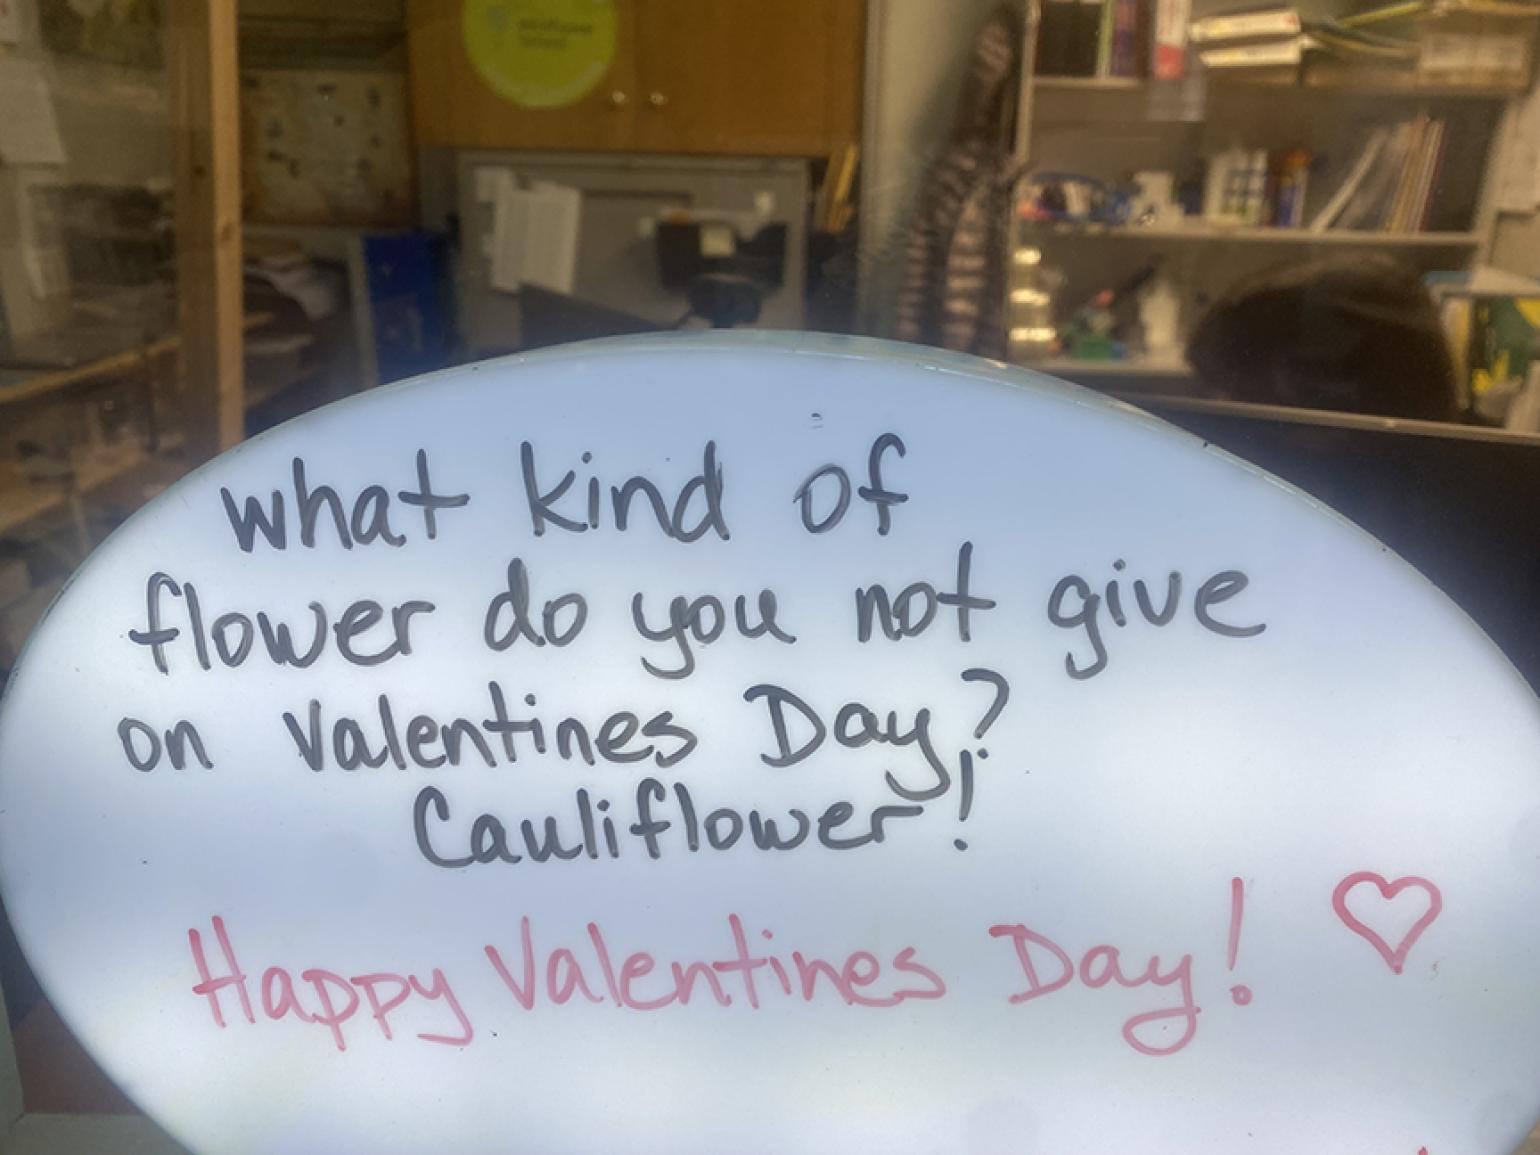 what kind of
flower do you not give
on Valentines Day?
Cauliflower!
Happy Valentines Day! ♡